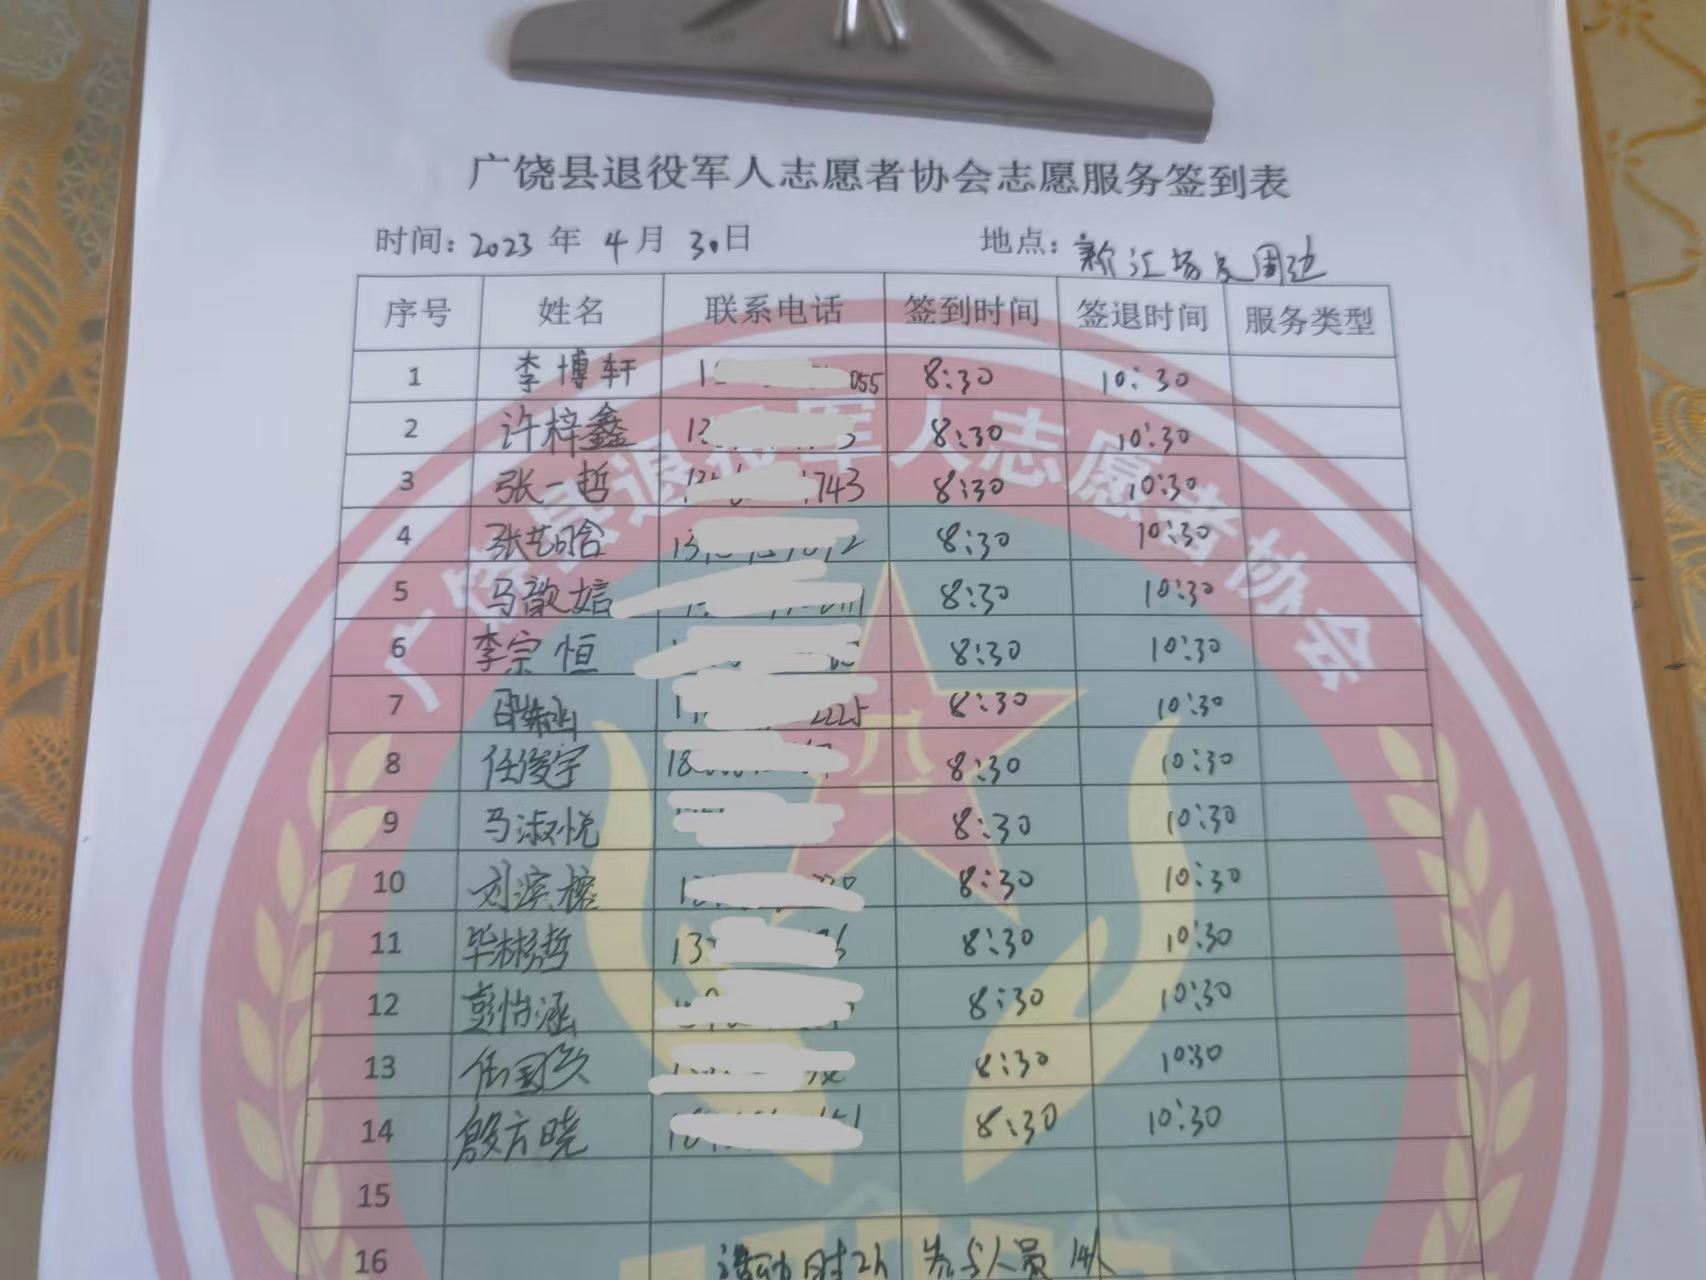 广饶县退役军人志愿者协会志愿服务签到表
时间：2023 年 4 月 30日 地点：新汇场及周边
序号 姓名 联系电话 签到时间 签退时间 服务类型
1 李博轩 055 8:30 10:30
2 许梓鑫 8:30 10:30
3 张一哲 743 8:30 10:30
4 张艺晗 8:30 10:30
5 马歆婄 8:30 10:30
6 李宗恒 8:30 10:30
7 2225 8:30 10:30
8 任浚宇 8:30 10:30
9 马淑悦 8:30 10:30
10 刘滨榕 8:30 10:30
11 毕彬哲 8:30 10:30
12 彭怡涵 8:30 10:30
13 任国 8:30 10:30
14 殷方晓 8:30 10:30
15
16 活动时2h 参与人员 14人
广饶县退役军人志愿者协会
八一